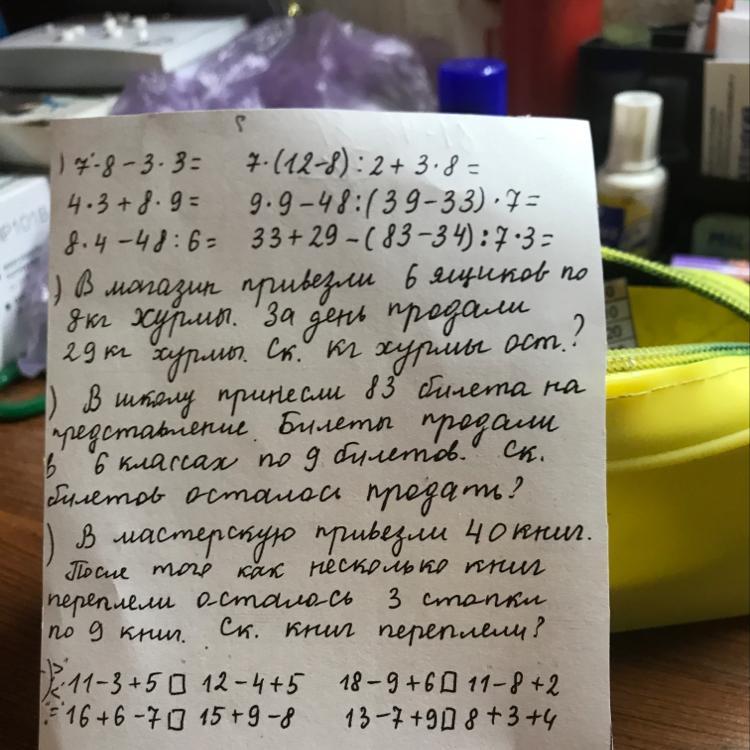 ) 7·8-3·3= 7·(12-8):2+3·8=
4·3+8·9= 9·9-48:(39-33)·7=
8·4-48:6= 33+29-(83-34):7·3=
) В магазин привезли 6 ящиков по
8кг хурмы. За день продали
29кг хурмы. Ск. кг хурмы ост.?
) В школу принесли 83 билета на
представление. Билеты продали
в 6 классах по 9 билетов. Ск.
билетов осталось продать?
) В мастерскую привезли 40 книг.
После того как несколько книг
переплели осталось 3 стопки
по 9 книг. Ск. книг переплели?
) > < 11-3+5 □ 12-4+5 18-9+6 □ 11-8+2
= 16+6-7 □ 15+9-8 13-7+9 □ 8+3+4